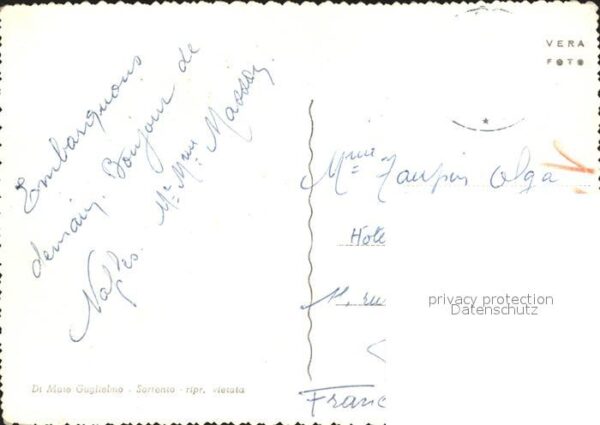 Embarquons
demain. Bonjour de
Naples. Mr Mme Masson
VERA
FOTO
Mme Taupin Olga
Hote
rue
Franc
privacy protection
Datenschutz
Di Maio Guglielmo - Sorrento - ripr. vietata